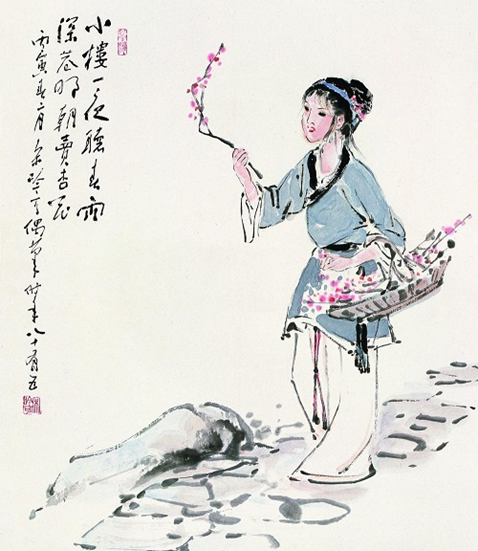 小樓一夜聽春雨
深巷明朝賣杏花
丙寅春二月宋吟可偶筆時年八十有五